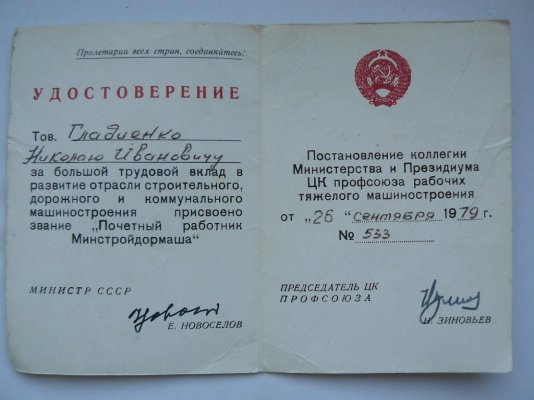 Пролетарии всех стран, соединяйтесь!
УДОСТОВЕРЕНИЕ
Тов. Гладиенко
Николаю Ивановичу
за большой трудовой вклад в
развитие отрасли строительного,
дорожного и коммунального
машиностроения присвоено
звание „Почетный работник
Минстройдормаша“
МИНИСТР СССР
Е. НОВОСЕЛОВ
Постановление коллегии
Министерства и Президиума
ЦК профсоюза рабочих
тяжелого машиностроения
от „26 “ сентября 1979 г.
№ 533
ПРЕДСЕДАТЕЛЬ ЦК
ПРОФСОЮЗА
ЗИНОВЬЕВ